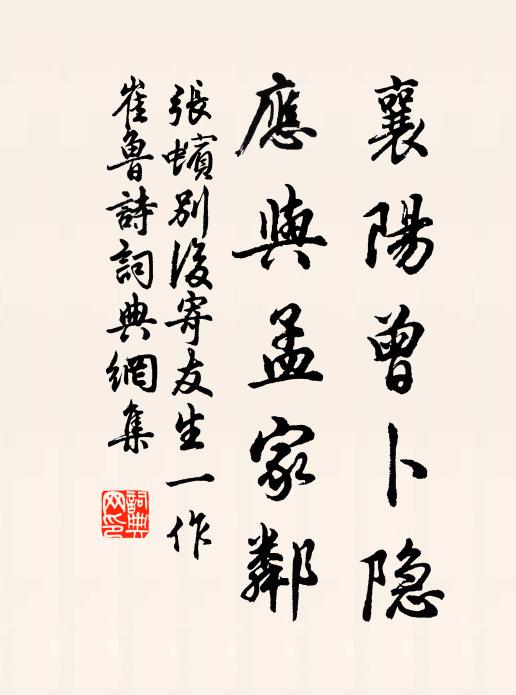 襄陽曾卜隐
應與孟家鄰
張蠙別後寄友生一作
崔魯詩詞典網集
詞典
网印